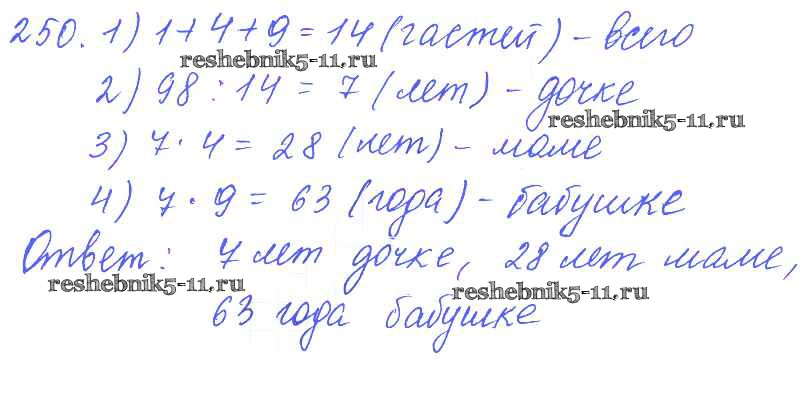 250. 1) 1+4+9=14 (частей) - всего
reshebnik5-11.ru
2) 98 : 14 = 7 (лет) - дочке
reshebnik5-11.ru
3) 7 · 4 = 28 (лет) - маме
4) 7 · 9 = 63 (года) - бабушке
Ответ: 7 лет дочке, 28 лет маме,
reshebnik5-11.ru reshebnik5-11.ru
63 года бабушке